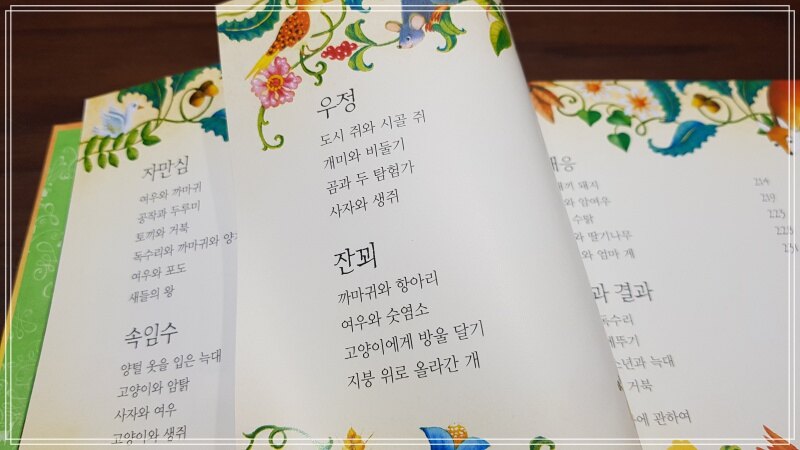 자만심
여우와 까마귀
공작과 두루미
토끼와 거북
독수리와 까마귀와 양
여우와 포도
새들의 왕
속임수
양털 옷을 입은 늑대
고양이와 암탉
사자와 여우
고양이와 생쥐
우정
도시 쥐와 시골 쥐
개미와 비둘기
곰과 두 탐험가
사자와 생쥐
잔꾀
까마귀와 항아리
여우와 숫염소
고양이에게 방울 달기
지붕 위로 올라간 개
돼지 214
암여우 219
수탉 223
딸기나무 228
엄마 게
과 결과
독수리
소년과 늑대
거북
에 관하여